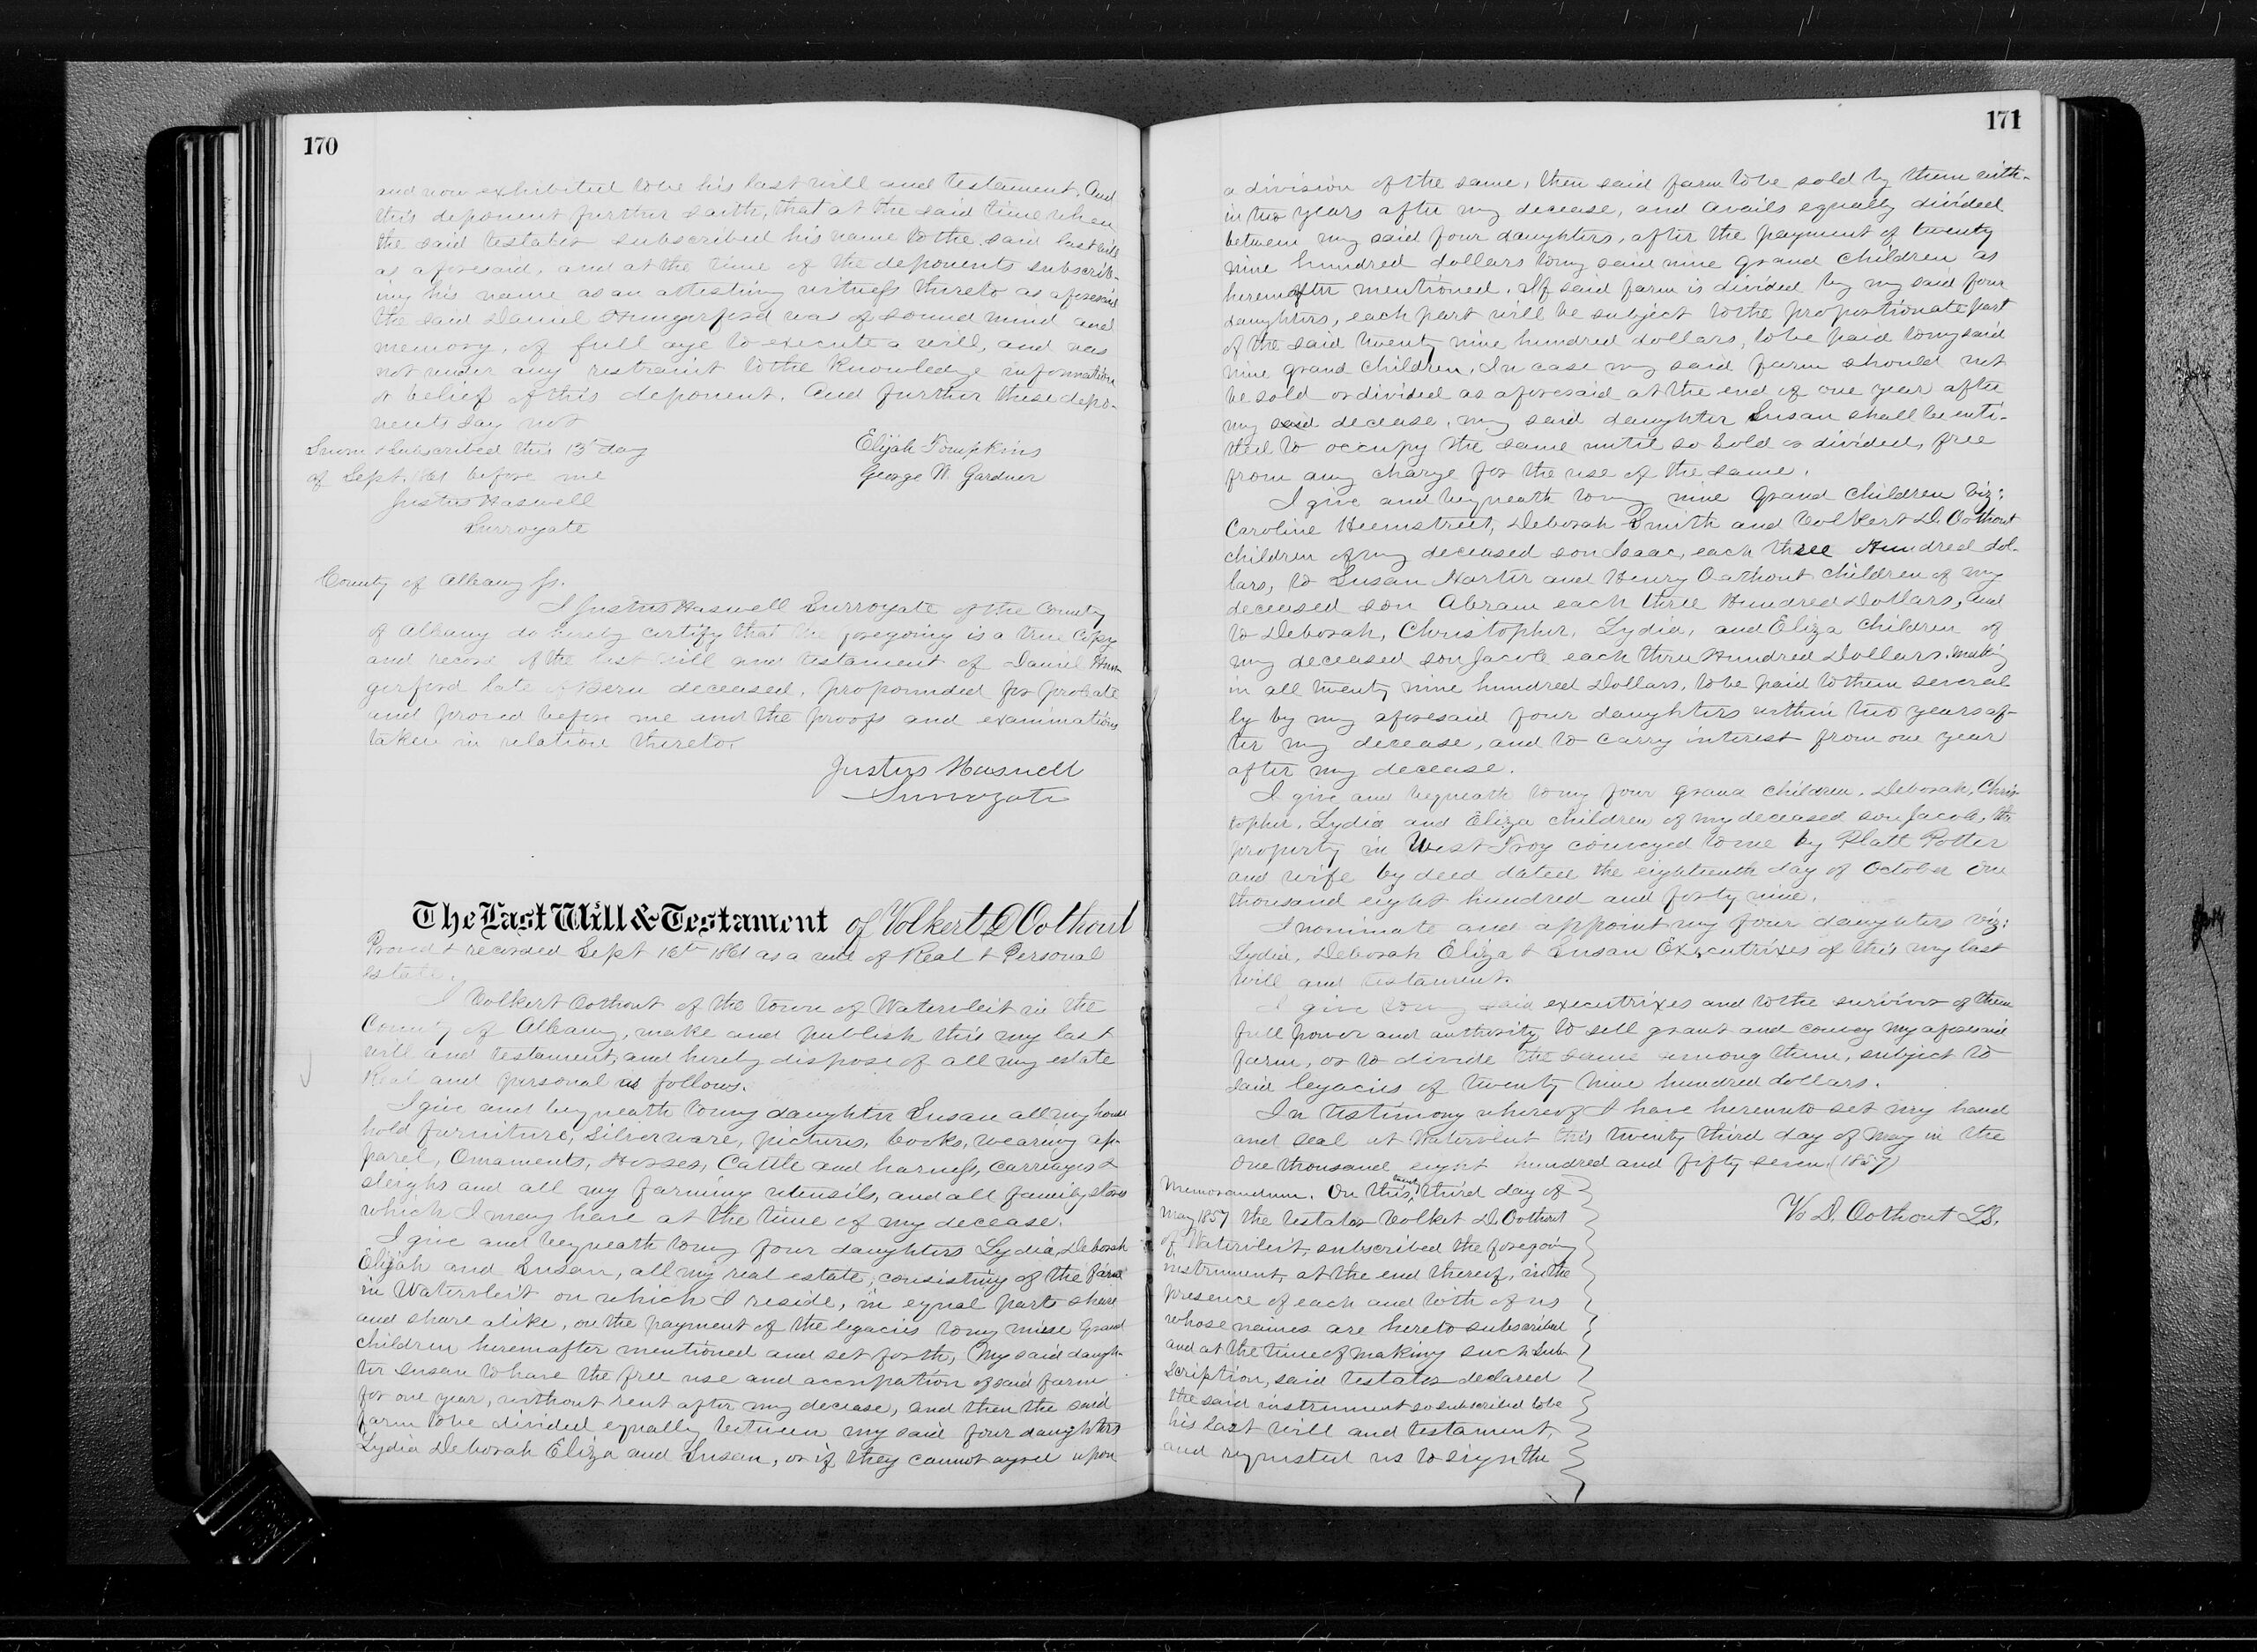 170
and now exhibited to be his last will and testament. And
this deponent further saith, that at the said time when
the said testator subscribed his name to the said last will
as aforesaid, and at the time of the deponents subscrib-
ing his name as an attesting witness thereto as aforesaid
the said Daniel Hungerford was of sound mind and
memory, of full age to execute a will, and was
not under any restraint to the knowledge information
or belief of this deponent. And further these depo-
nents say not
Sworn & subscribed this 13th day
of Sept. 1861 before me
Justus Haswell
Surrogate
Elijah Tompkins
George W. Gardner
County of Albany Ss.
I Justus Haswell Surrogate of the County
of Albany do hereby certify that the foregoing is a true Copy
and record of the last will and testament of Daniel Hun-
gerford late of Bern deceased, propounded for probate
and proved before me and the proofs and examinations
taken in relation thereto.
Justus Haswell
Surrogate
The Last Will & Testament of Volkert D Oothout
Proved & recorded Sept 16th 1861 as a will of Real & Personal
estate.
I Volkert Oothout of the town of Watervleit in the
County of Albany, make and publish this my last
will and testament, and hereby dispose of all my estate
Real and personal as follows.
I give and bequeath to my daughter Susan all my house
hold furniture, silverware, pictures, books, wearing ap-
parel, Ornaments, Horses, Cattle and harness, carriages &
sleighs and all my farming utensils, and all family stores
which I may have at the time of my decease.
I give and bequeath to my four daughters Lydia, Deborah
Elijah and Susan, all my real estate, consisting of the farm
in Watervleit on which I reside, in equal parts share
and share alike, on the payment of the legacies to my nine Grand
children hereinafter mentioned and set forth, My said daugh-
ter Susan to have the free use and accupation of said farm
for one year, without rent after my decease, and then the said
farm to be divided equally between my said four daughters
Lydia Deborah Eliza and Susan, or if they cannot agree upon
171
a division of the same, then said farm to be sold by them with-
in two years after my decease, and avails equally divided
between my said four daughters, after the payment of twenty
nine hundred dollars to my said nine grand children as
hereinafter mentioned. If said farm is divided by my said four
daughters, each part will be subject to the proportionate part
of the said twenty nine hundred dollars, to be paid to my said
nine grand children. In case my said farm should not
be sold or divided as aforesaid at the end of one year after
my said decease, my said daughter Susan shall be enti-
tled to occupy the same until so sold or divided, free
from any charge for the use of the same.
I give and bequeath to my nine Grand Children viz:
Caroline Heemstreet, Deborah Smith and Volkert D. Oothout
children of my deceased son Isaac, each three Hundred dol-
lars, to Susan Harter and Henry Oathout children of my
deceased son Abram each three Hundred Dollars, and
to Deborah, Christopher, Lydia, and Eliza Children of
my deceased son Jacob each three Hundred Dollars. making
in all twenty nine hundred Dollars, to be paid to them several
ly by my aforesaid four daughters within two years af-
ter my decease, and to carry interest from one year
after my decease.
I give and bequeath to my four grand children. Deborah, Chris-
topher, Lydia and Eliza children of my deceased son Jacob, the
property in West Troy conveyed to me by Platt Potter
and wife by deed dated the eighteenth day of October One
thousand eight hundred and forty nine.
I nominate and appoint my four daughters viz:
Lydia, Deborah Eliza & Susan Executrixes of this my last
will and testament.
I give to my said executrixes and to the survivor of them
full power and authority to sell grant and convey my aforesaid
farm, or to divide the same among them, subject to
said legacies of twenty nine hundred dollars.
In testimony whereof I have hereunto set my hand
and seal at Watervleit this twenty third day of May in the
One thousand eight hundred and fifty seven. (1857)
V. D. Oothout LS.
Memorandum. On this twenty third day of
May 1857 the testator Volket D. Oothout
of Watervleit, subscribed the foregoing
instrument, at the end thereof, in the
presence of each and both of us
whose names are hereto subscribed
and at the time of making such Sub-
scription, said testator declared
the said instrument so subscribed to be
his last will and testament,
and requested us to sign the